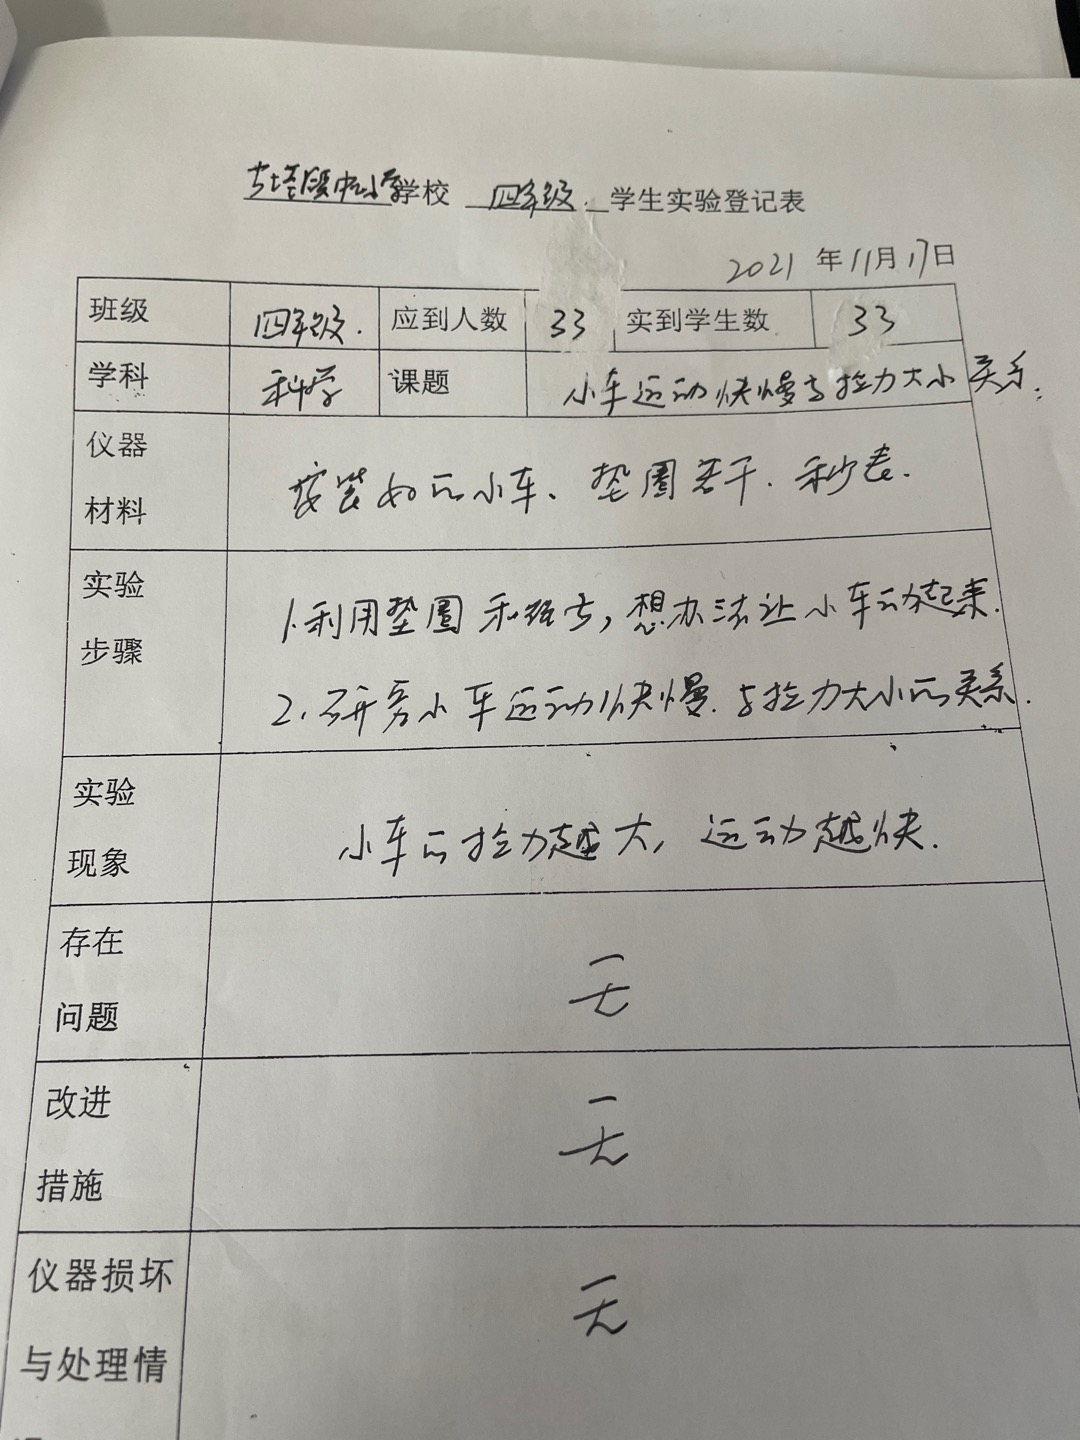 中心小学学校 四年级 学生实验登记表
2021 年 11月 17日
班级 四年级. 应到人数 33 实到学生数 33
学科 科学 课题 小车运动快慢与拉力大小关系.
仪器
材料
安装好的小车、垫圈若干、秒表.
实验
步骤
1.利用垫圈和绳子,想办法让小车动起来.
2.研究小车运动快慢与拉力大小的关系.
实验
现象
小车的拉力越大,运动越快.
存在
问题
无
改进
措施
无
仪器损坏
与处理情
无